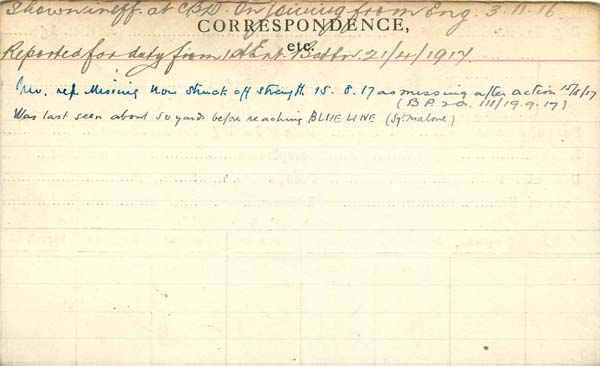 Shown ineff. at C.B.D. On joining from Eng. 3.11.16
CORRESPONDENCE,
etc.
Reported for duty from 1st Ent. Battn. 21/4/1917.
Prev. rep. Missing Now Struck off strength 15.8.17 as missing after action 15/8/17
(B.P. 20. 111/19.9.17)
Was last seen about 50 yards before reaching BLUE LINE (Sgt Malone)